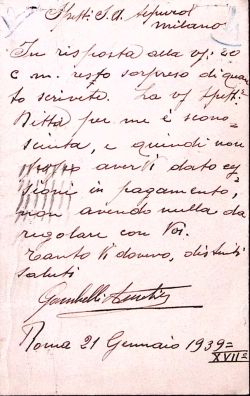 Spett. S.A.
Milano
In risposta alla vs. 20
c m. resto sorpreso di quan
to scrivete. La vs Spett.
Ditta per me è scono-
sciuta, e quindi non
posso avervi dato ces
sioni in pagamento,
non avendo nulla da
regolare con Voi.
Tanto Vi dovevo, distinti
saluti
Roma 21 Gennaio 1939=
XVII=